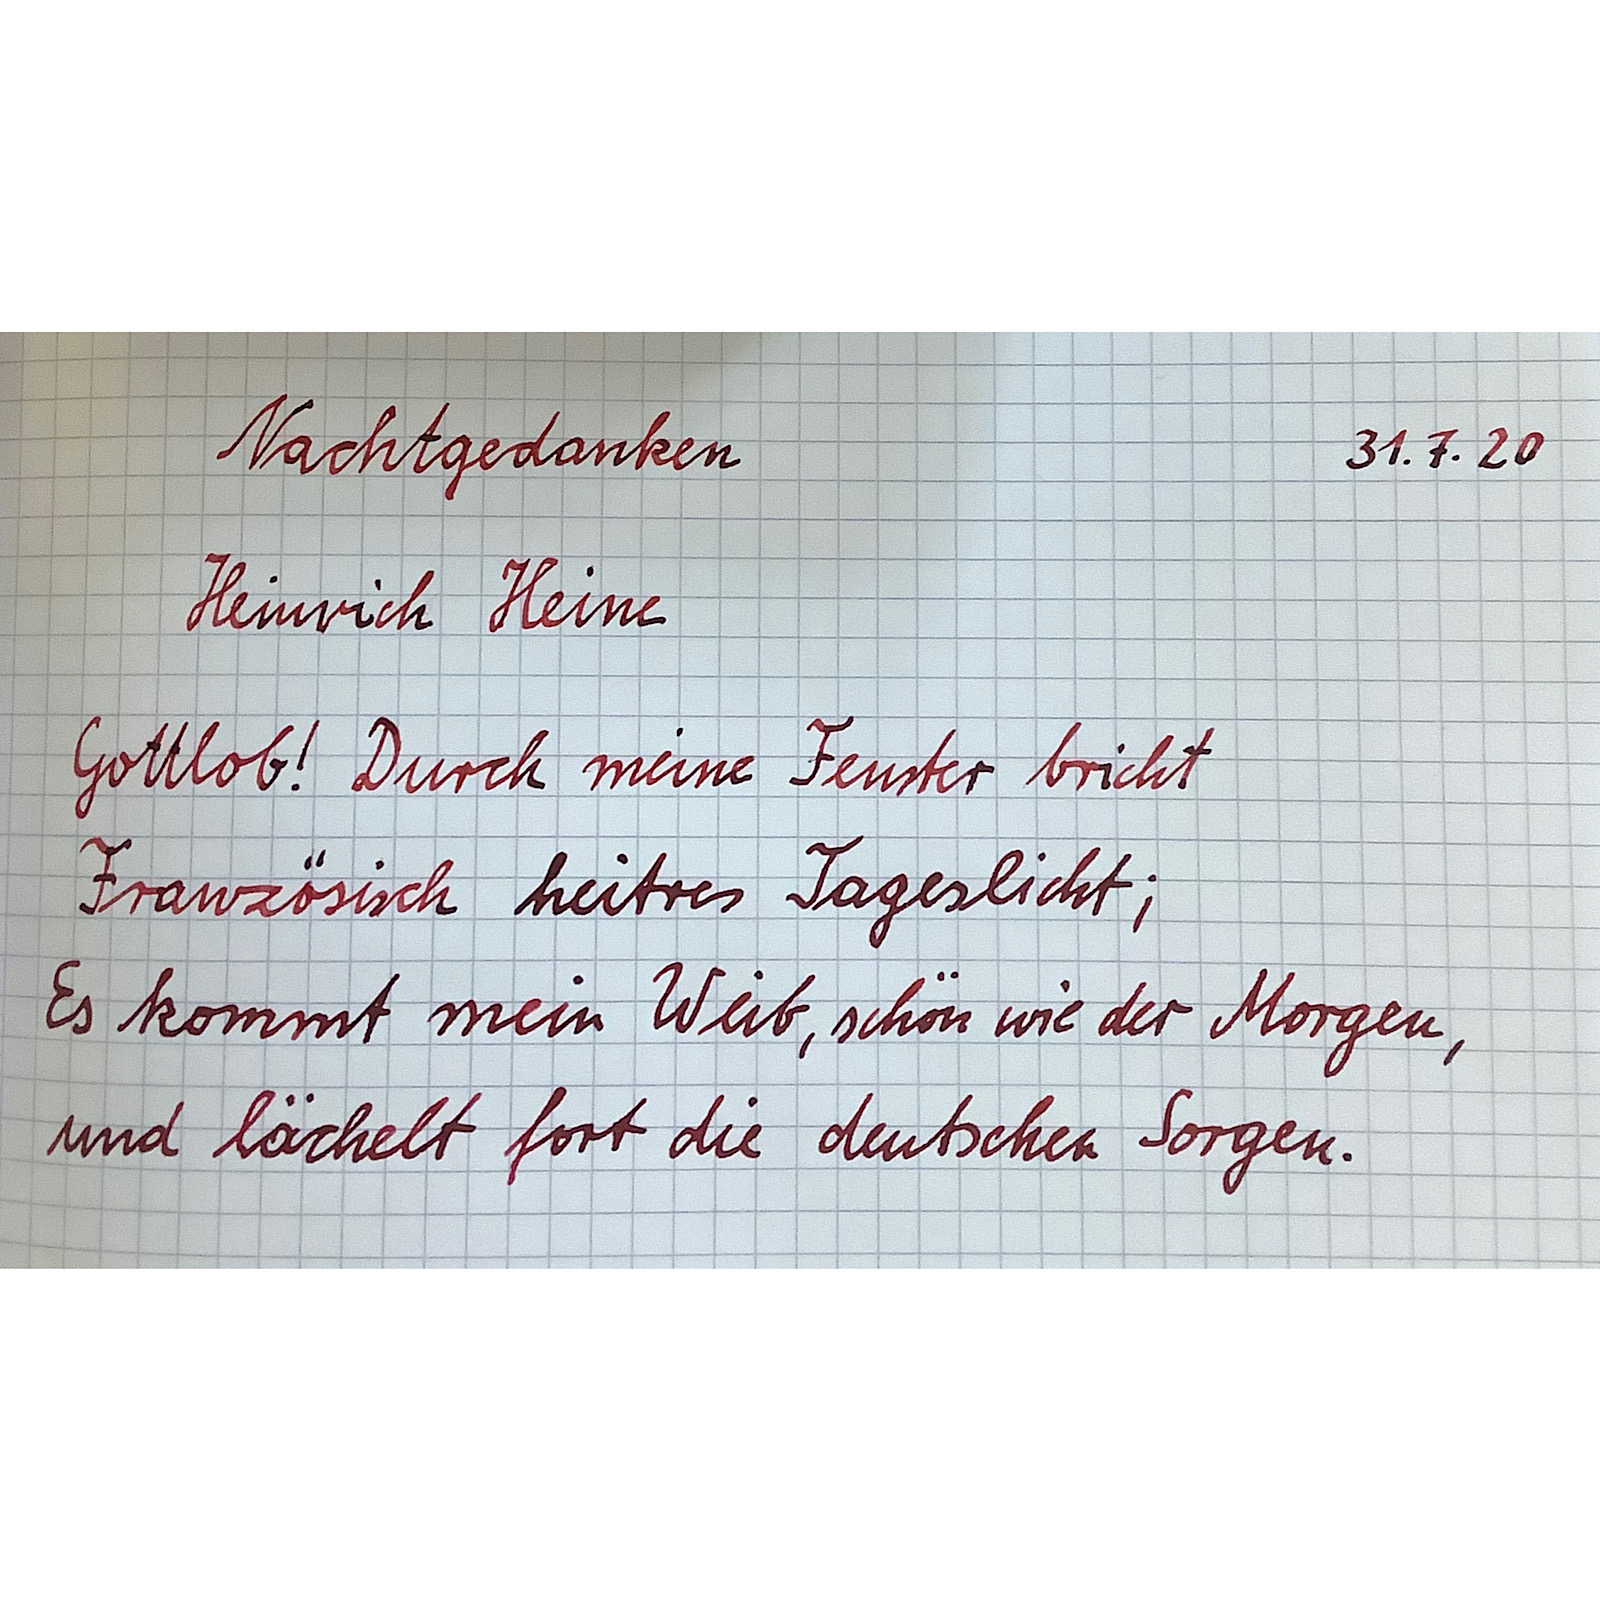 Nachtgedanken 31.7.20
Heinrich Heine
Gottlob! Durch meine Fenster bricht
Französisch heitres Tageslicht;
Es kommt mein Weib, schön wie der Morgen,
und lächelt fort die deutschen Sorgen.